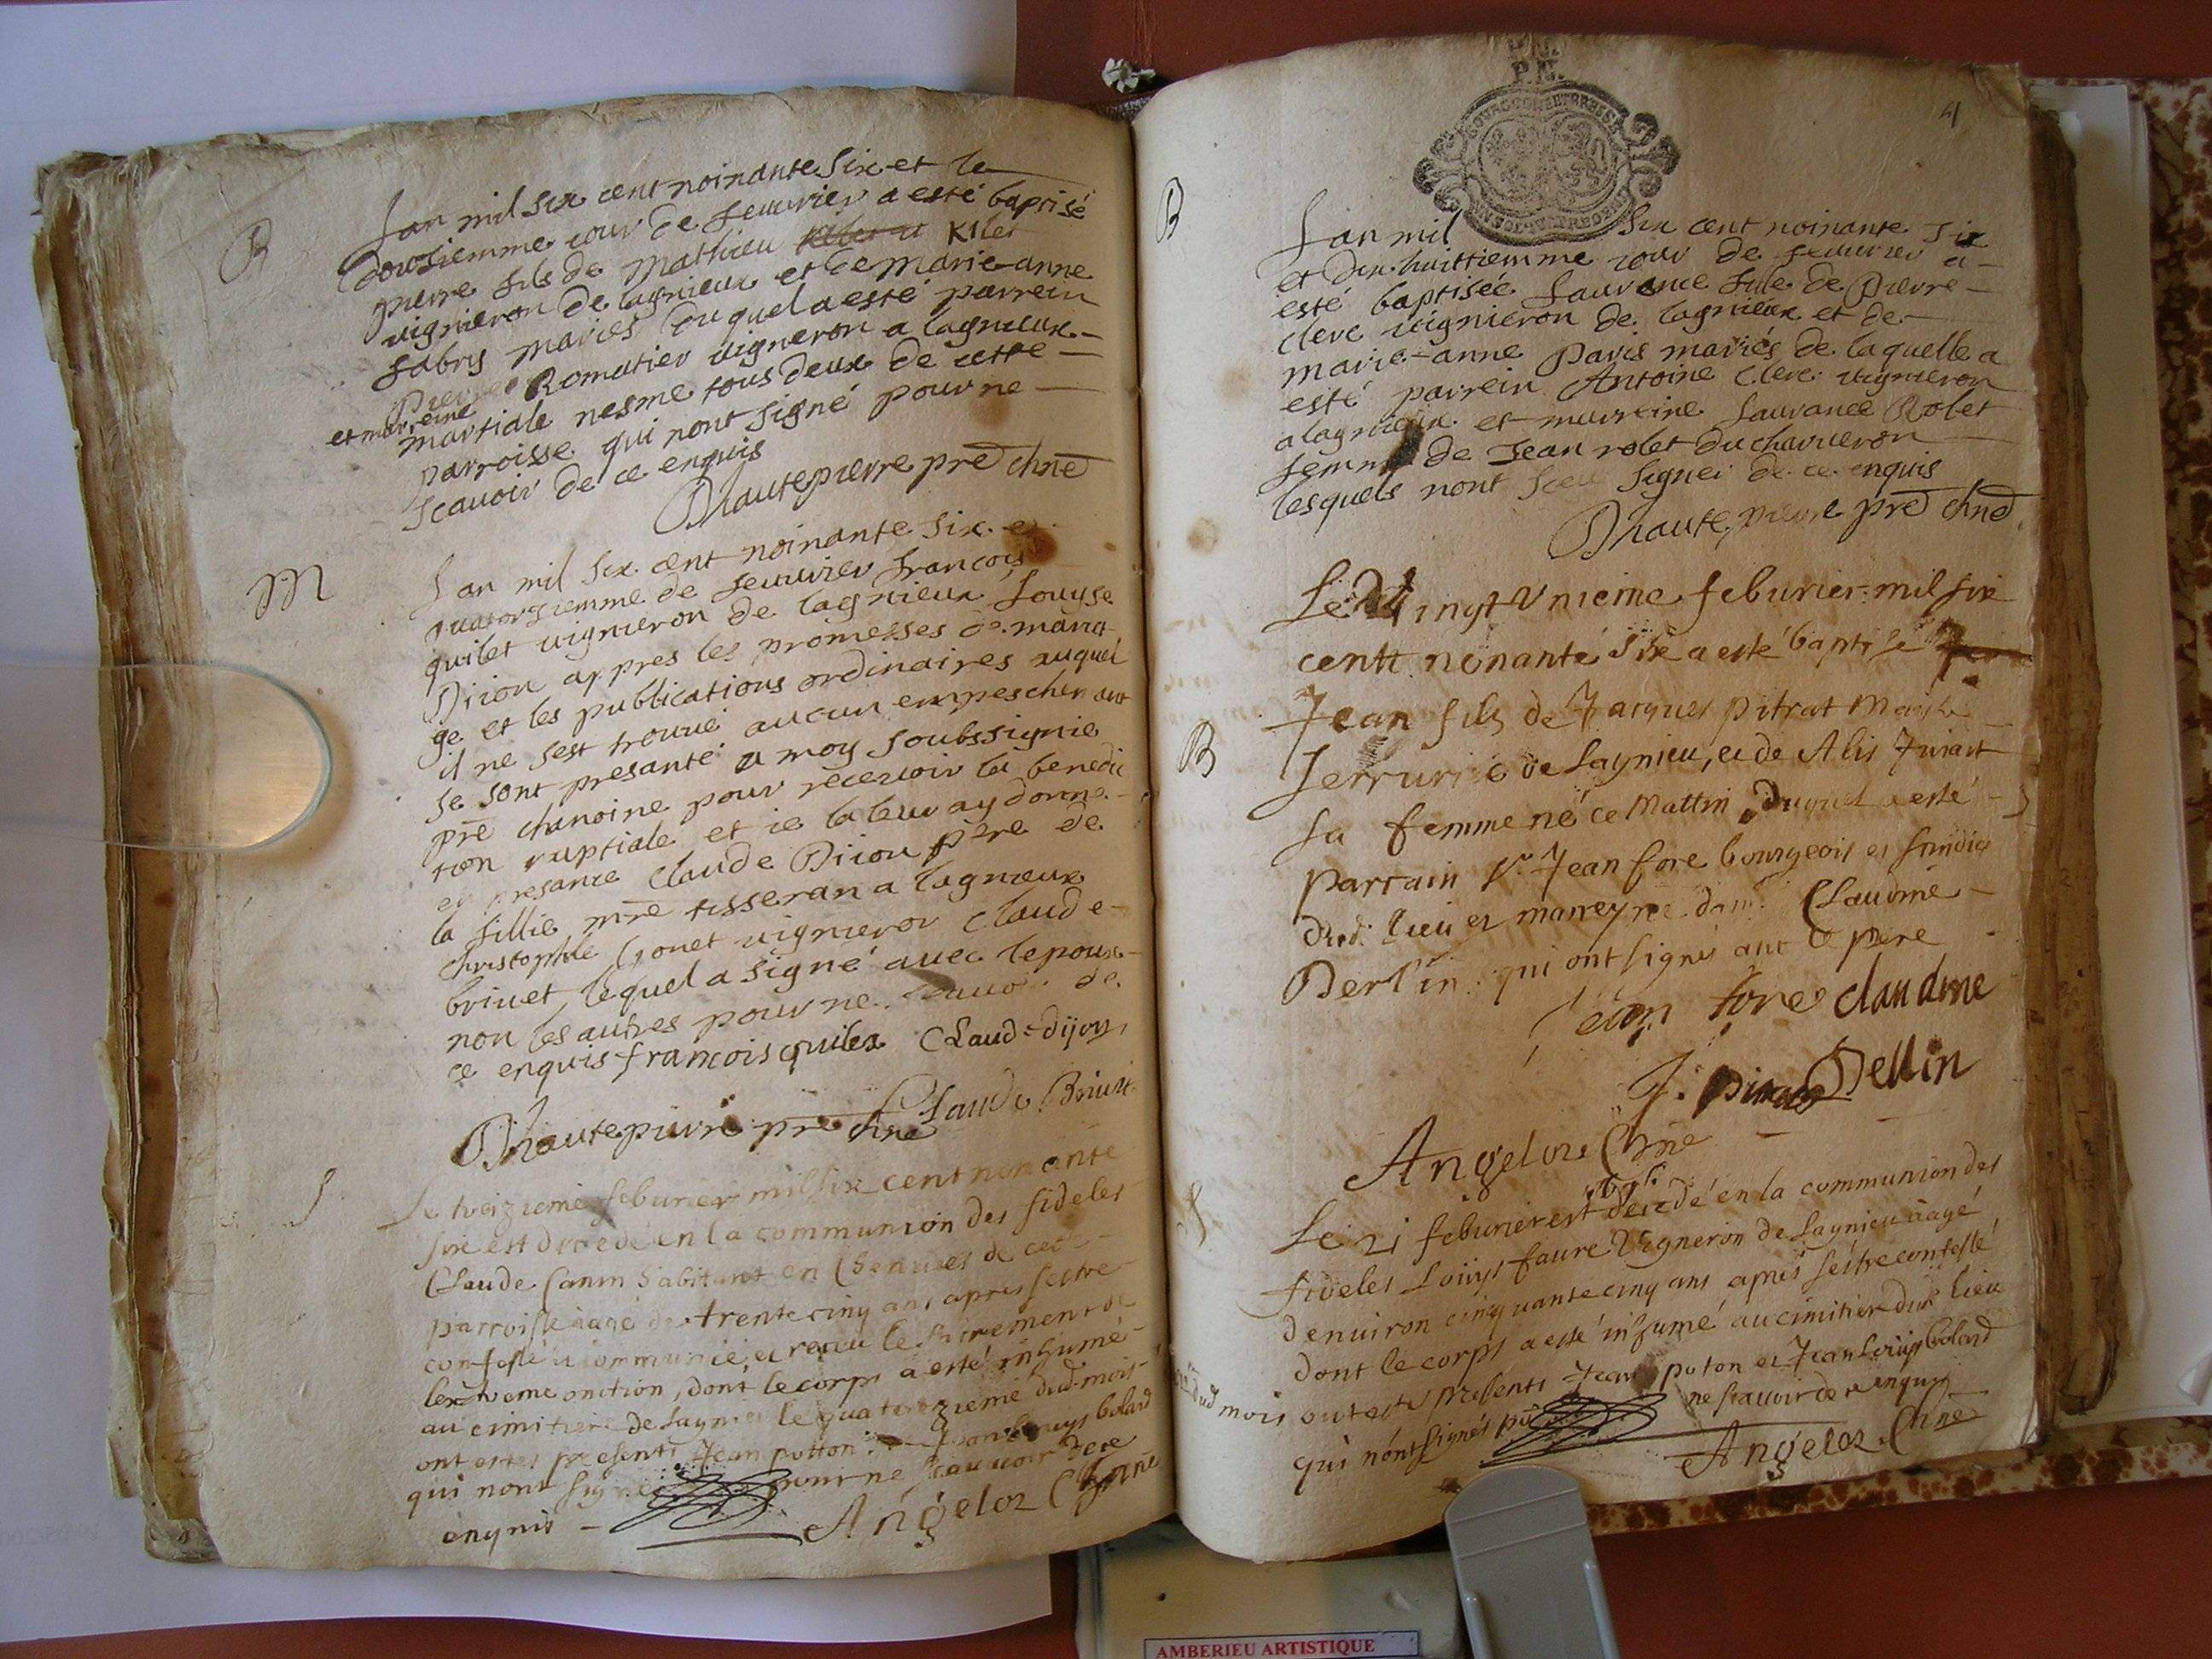 B
Lan mil six cent noinante six et le
dousiemme iour de feuurier a esté baptisé
pierre fils de Mathieu Kilet
uignieron de lagnieux et de Marie-anne
fabry mariés du quel a esté parrein
Pierre Romatier uigneron a lagnieux
et marreine
martiale nesme tous deux de cette
parroisse qui nont signé pour ne
scauoir de ce enquis
Dhautepierre pre chne
M
Lan mil six cent noinante six et
quatorsiemme de feuurier francois
quilet uignieron de lagnieux Louyse
Diion appres les promesses de maria
ge et les publications ordinaires auquel
il ne sest trouué aucun empeschemant
se sont presanté a moy soubssignie
pre chanoine pour receuoir la benedic
tion nuptiale et ie la leur ay donné
en presance Claude Diion pere de
la fillie mre tisseran a lagnieux
christophle Gonet uignieron Claude
briuet lequel a signé auec lepoux
non les autres pour ne scauoir de
ce enquis francois quilex Claude dijon
Claude Briuet
Dhautepierre pre chne
S
Le treizieme feburier mil six cent nonante
six est decedé en la communion des fideles
Claude Canin habitant en Chenaues de cet
parroisse aagé de trente cinq ans apres sestre
confessé communié et receu le sacrement de
lextreme onction, dont le corps a esté inhumé
au cimitiere de Lagnieu le quatorzieme dud. mois
ont estes presents Jean potton et Jean Louys bolard
qui nont signé pour ne scauoir de ce
enquis
Angeloz Chne
P.N.
P.N.
BOURGOGNE ET BRESSE
4
B
Lan mil six cent noinante six
et dix huittiemme iour de feuurier a
esté baptisée Laurance fille de Pierre
clerc uignieron de lagnieux et de
marie-anne Paris mariés de laquelle a
esté parrein Antoine Clerc uignieron
a lagnieux et marreine Laurance Rolet
femme de Jean rolet du charueron
lesquels nont sceu signer de ce enquis
Dhautepierre pre chne
Le vingt Vnieme feburier mil six
centt nonanté six a esté baptisé
B
Jean fils de Jacques pitrat Maistre
serrurié de Lagnieu, et de Alis Juiart
sa femme né ce Mattin, duquel a esté
parrain Sr. Jean fore bourgeois et sindic
dud. lieu et marreyne dam. Claudine
Dertin qui ont signés auec le pere
Jean fore claudine
J. pitrat Dellin
Angeloz Chne
S
Le 21 feburier est decedé en la communion des
fideles Louys faure Vigneron de Lagnieu aagé
denuiron cinquante cinq ans apres sestre confessé
dont le corps a esté inhumé au cimitier dud lieu
dud mois ont esté presents Jean poton et Jean Louys bolard
qui nont signés pour ne scauoir de ce enquis
Angeloz Chne
AMBERIEU ARTISTIQUE